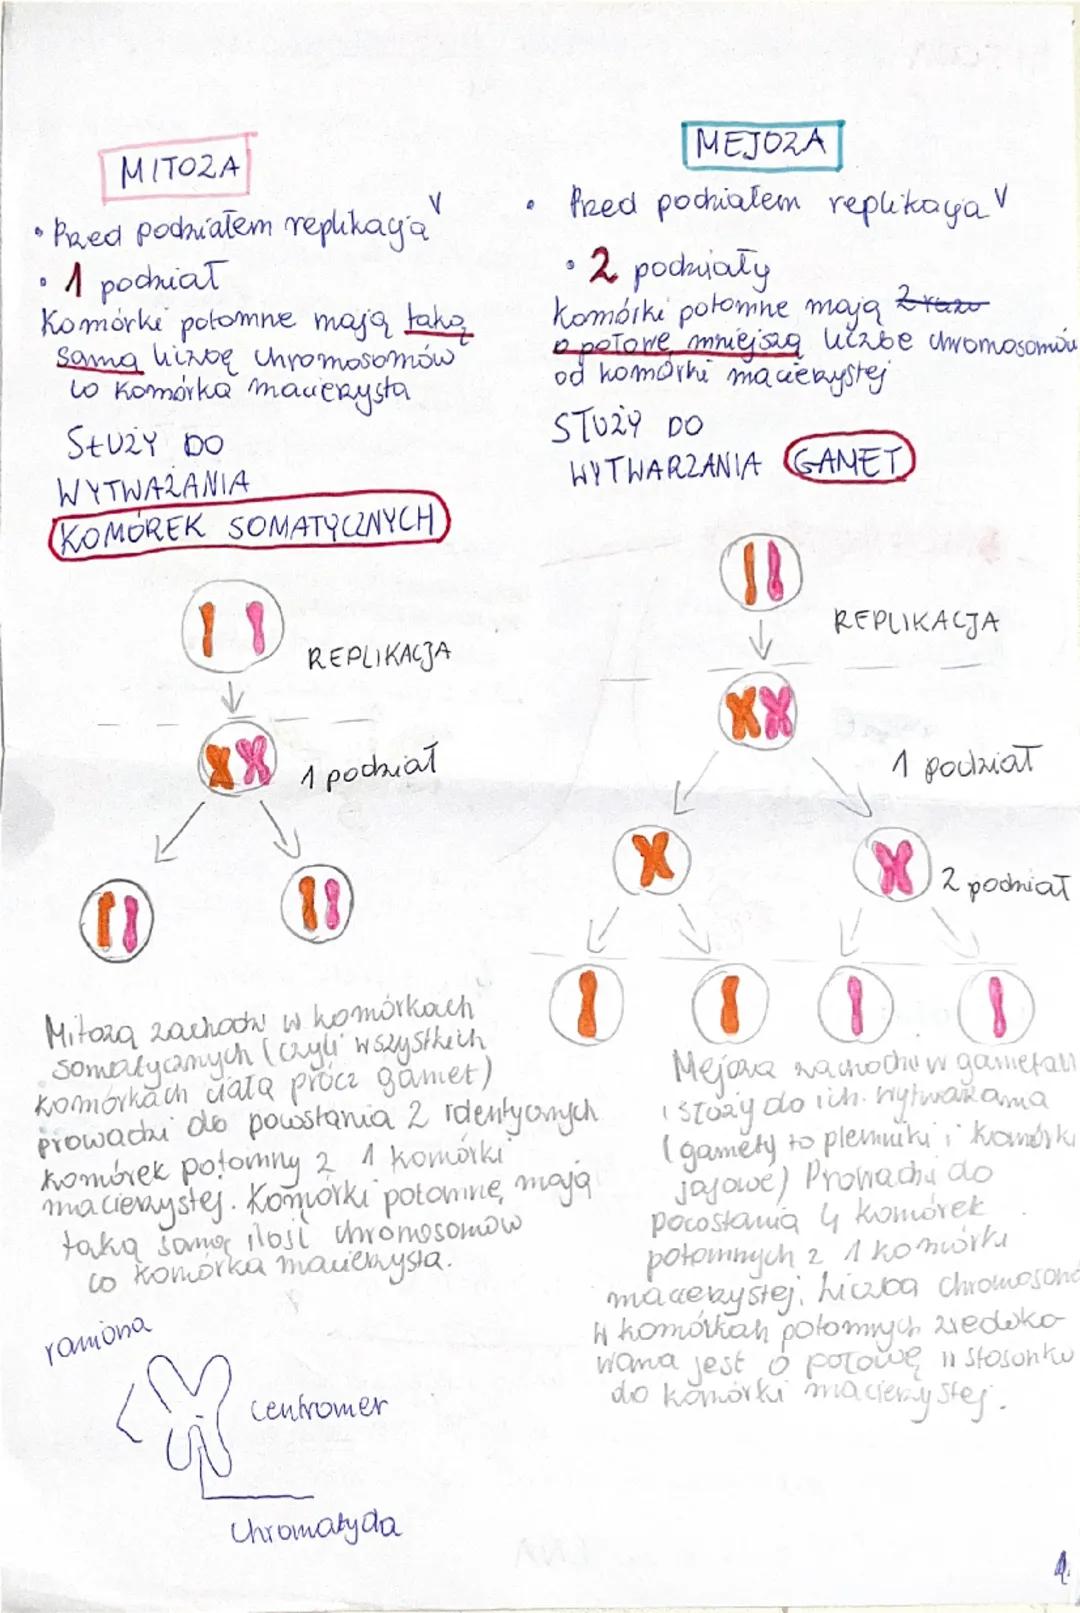 MITOZA
• Przed podziałem replikacja V
• 1 podział
Komórki potomne mają taką
samą liczbę chromosomów
co komórka macierzysta
SŁUŻY DO
WYTWAŻANIA
KOMÓREK SOMATYCZNYCH
REPLIKACJA
1 podział
Mitoza zachodzi w komórkach
somatycznych (czyli wszystkich
komórkach ciała prócz gamet)
prowadzi do powstania 2 identycznych
komórek potomny z 1 komórki
macierzystej. Komórki potomne mają
taką samą ilość chromosomów
co komórka macierzysta.
ramiona
centromer
chromatyda
MEJOZA
• Przed podziałem replikacja V
• 2 podziały
Komórki potomne mają 2 razo
o połowę mniejszą liczbe chromosomów
od komórki macierzystej
SŁUŻY DO
WYTWARZANIA GAMET
REPLIKACJA
1 podział
2 podział
Mejoza zachodzi w gametach
i służy do ich wytważania
(gamety to plemniki i komórki
jajowe) Prowadzi do
pocostania 4 komórek
potomnych z 1 komórki
macierzystej. Liczba chromosomó
w komórkah potomnych zredoko-
wana jest o połowę w stosunku
do komórki macierzystej.